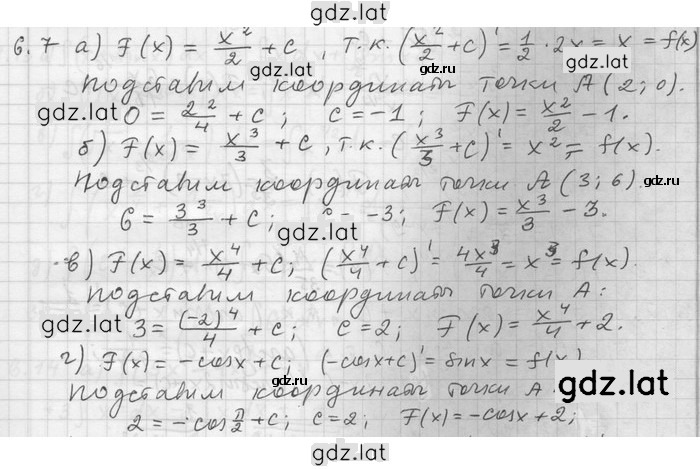 gdz.lat
6.7 а) F(x) = x²/2 + c , т.к. (x²/2 + c)' = 1/2 · 2x = x = f(x)
gdz.lat
Подставим координаты точки A(2;0).
gdz.lat 0 = 2²/4 + c ; c = -1 ; F(x) = x²/2 - 1. gdz.lat
б) F(x) = x³/3 + c , т.к. (x³/3 + c)' = x² = f(x).
Подставим координаты точки A(3;6). gdz.lat
6 = 3³/3 + c ; = -3 ; F(x) = x³/3 - 3.
gdz.lat
в) F(x) = x⁴/4 + c ; (x⁴/4 + c)' = 4x³/4 = x³ = f(x).
Подставим координаты точки A:
gdz.lat 3 = (-2)⁴/4 + c ; c = 2 ; F(x) = x⁴/4 + 2.
г) F(x) = -cosx + c ; (-cosx + c)' = sinx = f(x)
Подставим координаты точки A gdz.lat
2 = -cos π/2 + c ; c = 2 ; F(x) = -cosx + 2 ;
gdz.lat